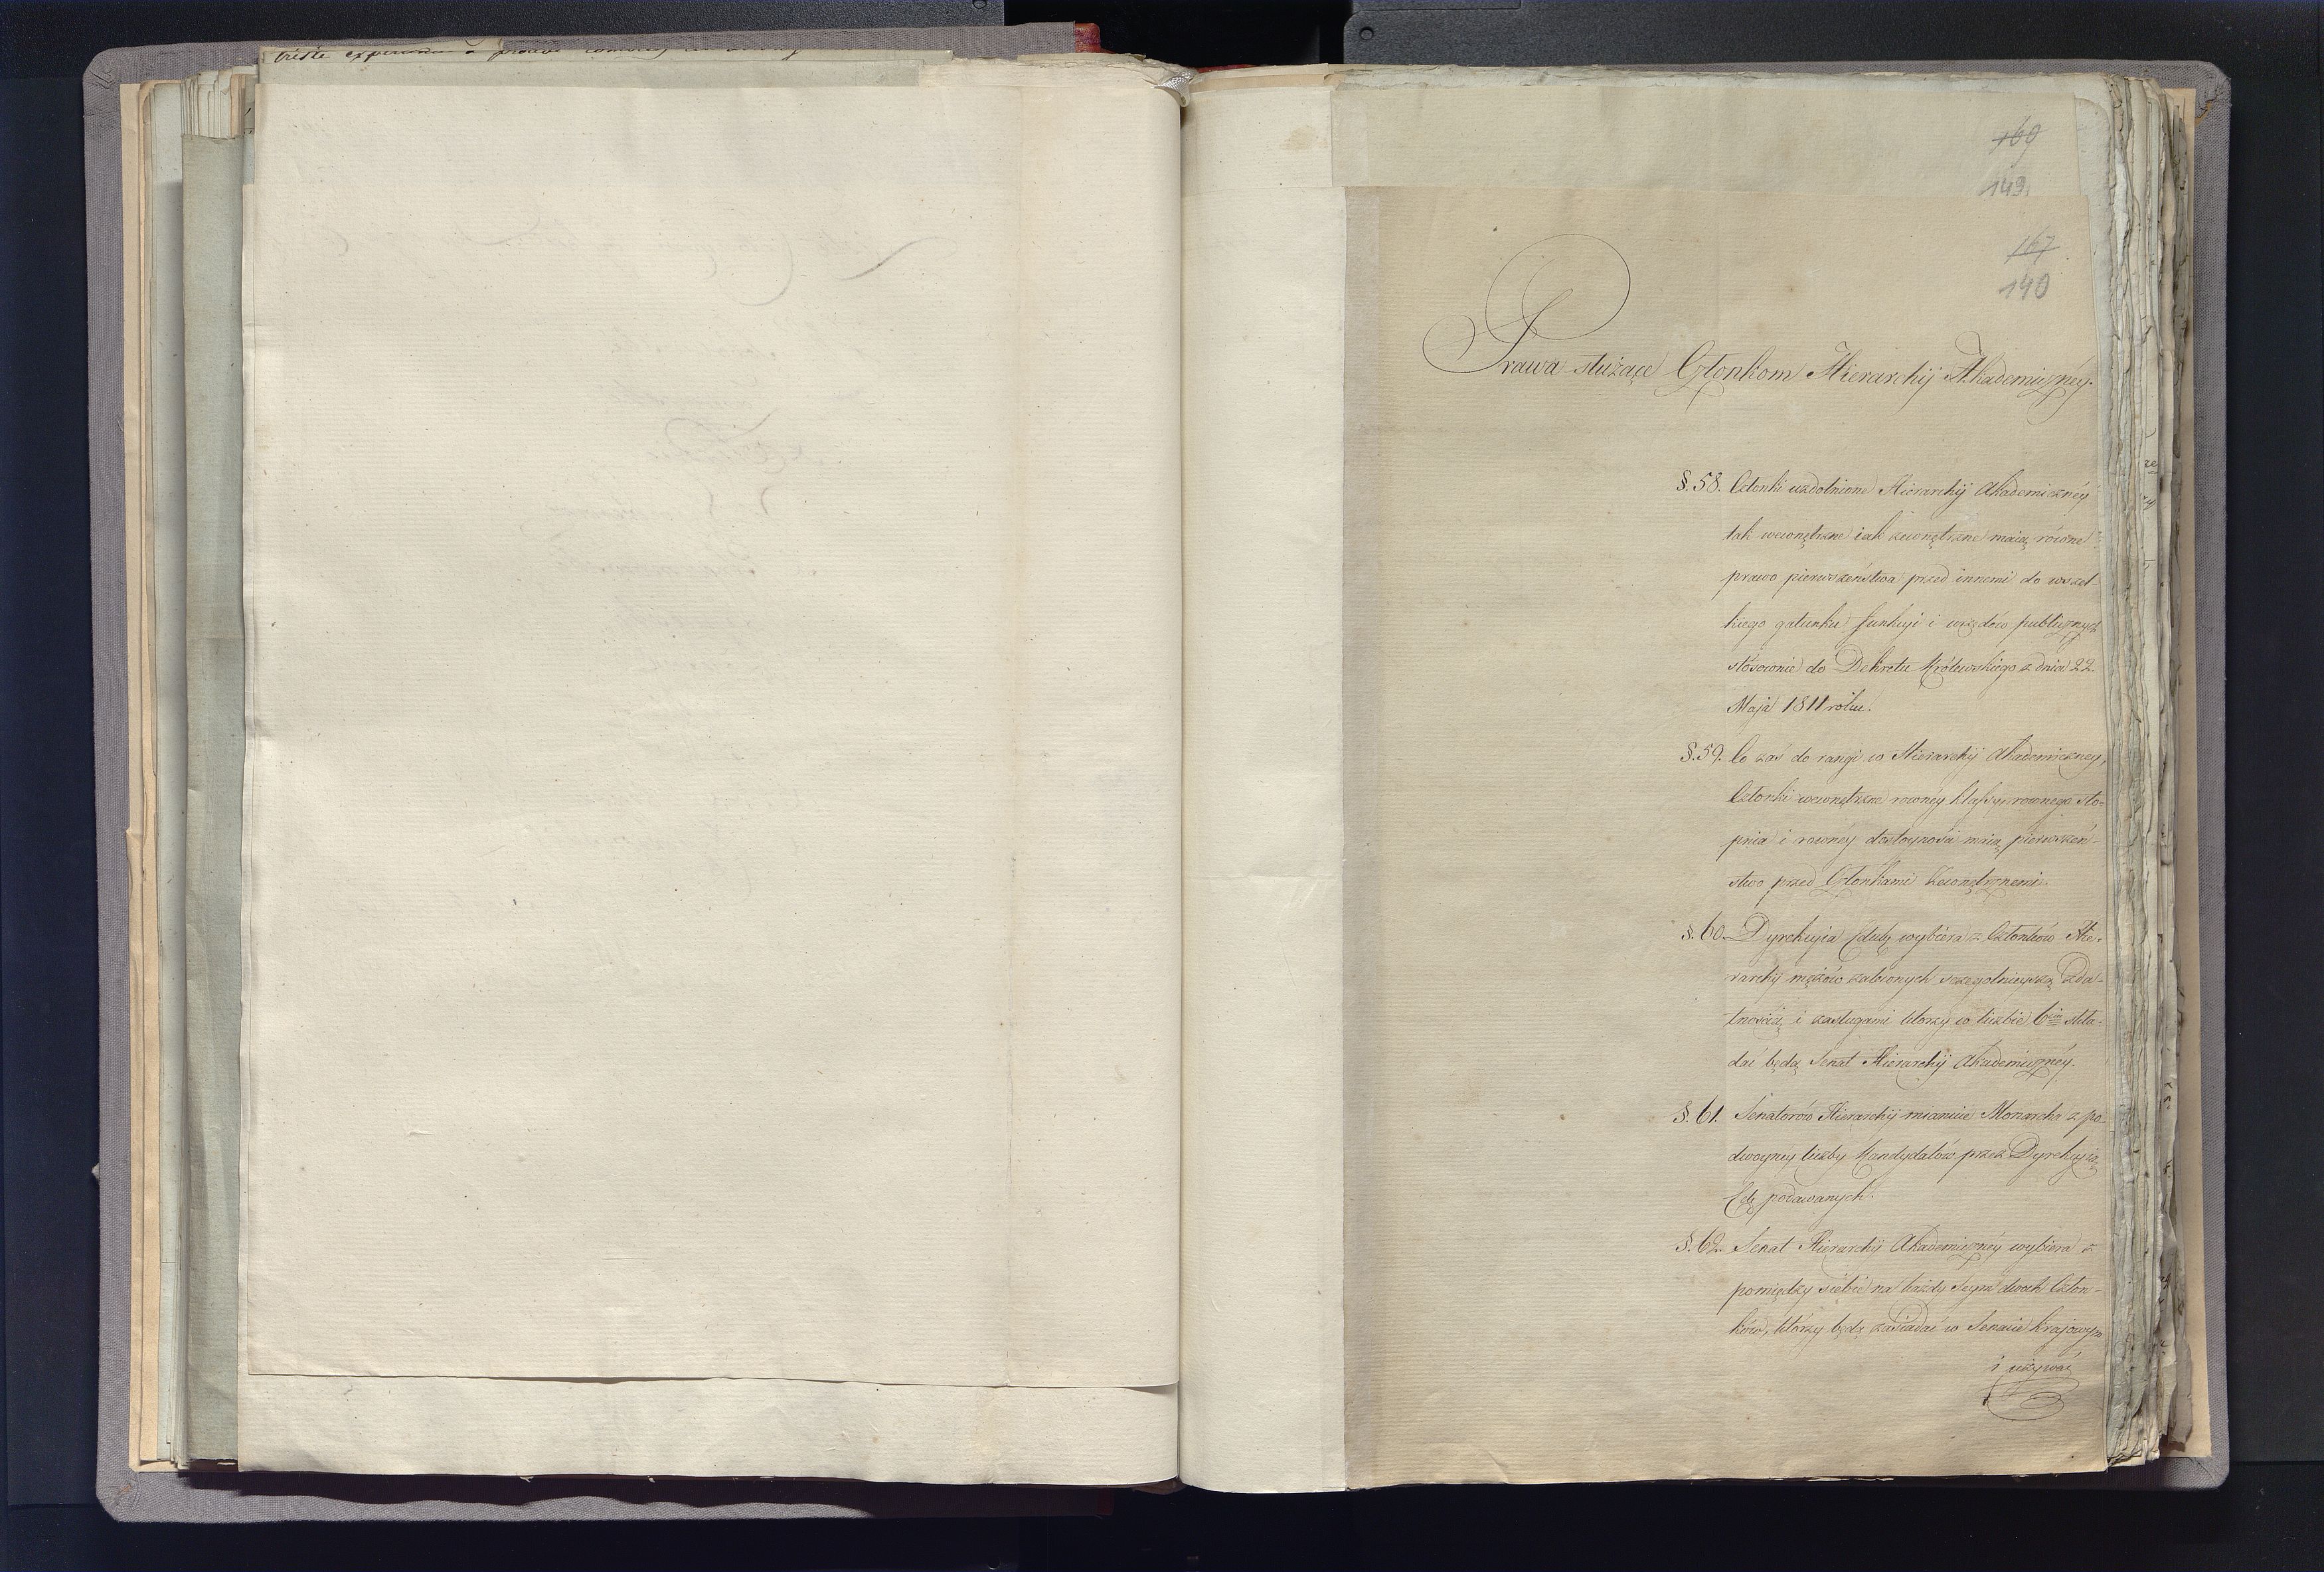 169
149.
167
140
Prawa służące Członkom Hierarchij Akademiczney.
§. 58. Członki uzdolnione Hierarchij Akademiczney
tak wewnętrzne iak zewnętrzne maią równe
prawo pierwszeństwa przed innemi do wszel-
kiego gatunku funkcyi i urzędów publicznych
stósownie do Dekretu Królewskiego z dnia 22.
Maja 1811 roku.
§. 59. Co zaś do rangi w Hierarchij Akademiczney,
Członki wewnętrzne rowney klassy, rownego sto-
pnia i rowney dostoyności maią pierwszeń-
stwo przed Członkami Zewnętrznemi.
§. 60. Dyrekcyia Eduk. wybiera z Członków Hie-
rarchij mężów zaleconych szczegolnieyszą zda-
tnością i zasługami którzy w liczbie 6ciu skła-
dać będą Senat Hierarchij Akademiczney.
§. 61. Senatorów Hierarchij mianuie Monarcha z po-
dwoyney liczby Kandydatów przez Dyrekcyią
Edę podawanych.
§. 62. Senat Hierarchij Akademiczney wybiera z
pomiędzy siebie na każdy Seym dwoch Człon-
ków, którzy będą zasiadać w Senacie Krajowym
i używać